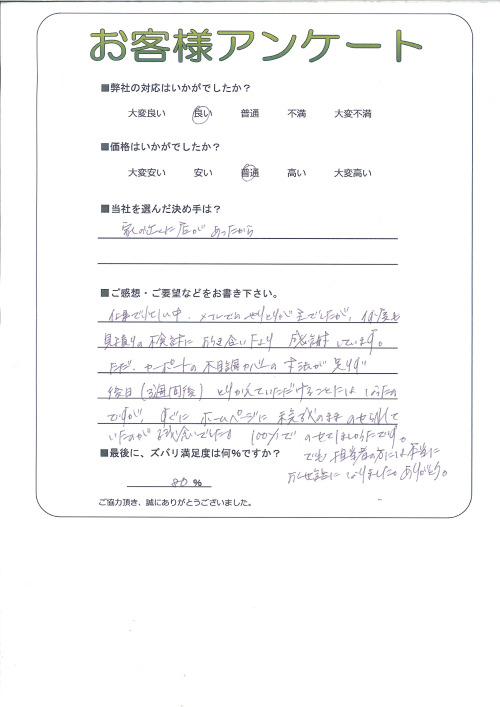 お客様アンケート
■弊社の対応はいかがでしたか？
大変良い 良い 普通 不満 大変不満
■価格はいかがでしたか？
大変安い 安い 普通 高い 大変高い
■当社を選んだ決め手は？
家の近くに店があったから
■ご感想・ご要望などをお書き下さい。
メールでのやりとりが主でしたが、何度も
見積りの検討に お付き合い下さり 感謝しています。
ただ、カーポートの 寸法が 足りず
後日（3週間後） とりかえていただけることには なったの
ですが、すぐに ホームページに 未完成のまま のせられて
いたのが 100%で のせてほしかったです。
■最後に、ズバリ満足度は何％ですか？
でも 担当者の方には本当に
お世話に なりました。ありがとう。
80 %
ご協力頂き、誠にありがとうございました。